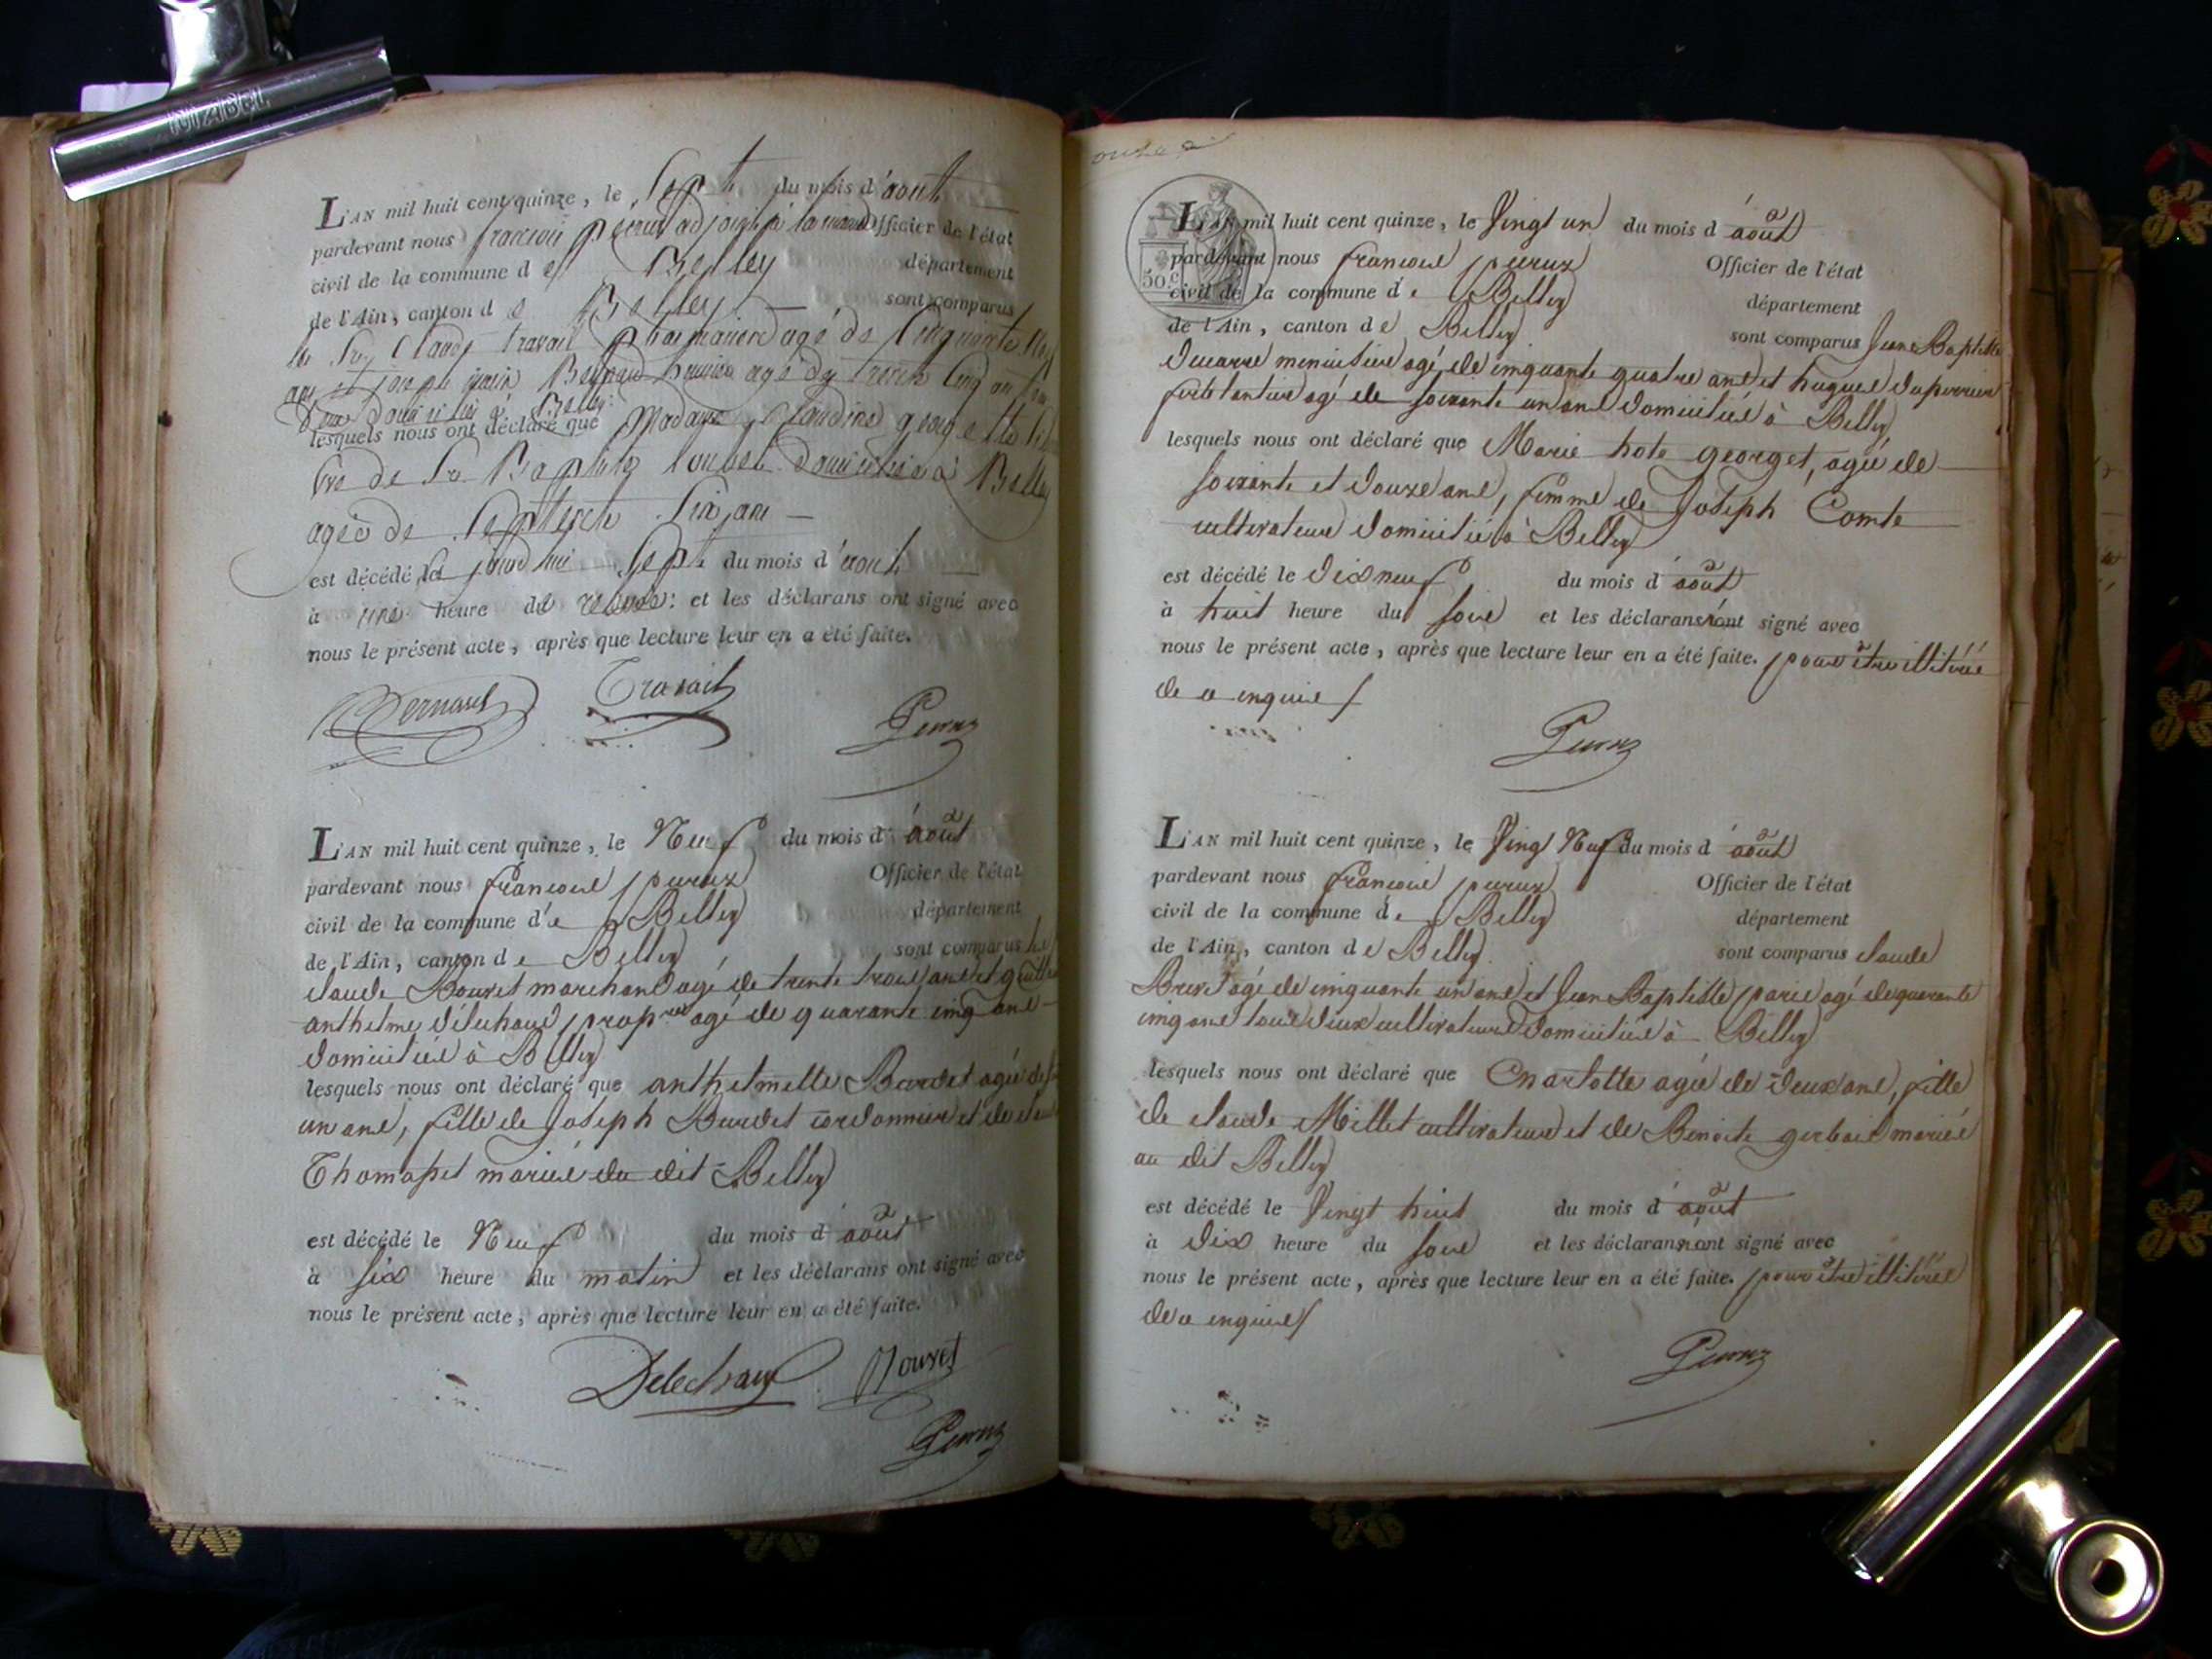 L'AN mil huit cent quinze, le Sept du mois d'aout
pardevant nous francois peruz adjoint à la mairie Officier de l'état
civil de la commune de Belley département
de l'Ain, canton de Belley sont comparus
les Srs Claude travail agé de Cinquante
ans et joseph Bernard agé de trente Cinq ans
tous deux domiciliés à Belley
lesquels nous ont déclaré que Madame Claudine georgette
Vve de Sr Baptiste domiciliée à Belley
agée de Septente Six ans
est décédé le jourdhui Sept du mois d'aout
à une heure de et les déclarans ont signé avec
nous le présent acte, après que lecture leur en a été faite.
Bernard Travail
Peruz
L'AN mil huit cent quinze, le Neuf du mois d'août
pardevant nous francois peruz Officier de l'état
civil de la commune de Belley département
de l'Ain, canton de Belley sont comparus
claude Bouvet marchand agé de trente trois ans et
anthelme propre agé de quarante cinq ans
domiciliés à Belley
lesquels nous ont déclaré que anthelmette Burdet agée de
un ans, fille de Joseph Burdet cordonnier et de
Thomasset mariés du dit Belley
est décédé le Neuf du mois d'août
à six heure du matin et les déclarans ont signé avec
nous le présent acte, après que lecture leur en a été faite.
Bouvet
Peruz
50 c
L'AN mil huit cent quinze, le Vingt un du mois d'août
pardevant nous francois peruz Officier de l'état
civil de la commune de Belley département
de l'Ain, canton de Belley sont comparus Jean Baptiste
Ducarre menuisier agé de cinquante quatre ans et hugues duperrier
ferblantier agé de soixante un ans domiciliés à Belley
lesquels nous ont déclaré que Marie hote georget, agée de
soixante et douze ans, femme de Joseph Comte
cultivateur domicilié à Belley
est décédé le dix neuf du mois d'août
à huit heure du soir et les déclarans n'ont signé avec
nous le présent acte, après que lecture leur en a été faite. pour être illitérés
de ce enquis
Peruz
L'AN mil huit cent quinze, le Vingt Neuf du mois d'août
pardevant nous francois peruz Officier de l'état
civil de la commune de Belley département
de l'Ain, canton de Belley sont comparus claude
agé de cinquante un ans et Jean Baptiste paris agé de quarante
cinq ans tous deux cultivateurs domiciliés à Belley
lesquels nous ont déclaré que Charlotte agée de deux ans, fille
de claude Millet cultivateur et de Benoite gerbais mariés
au dit Belley
est décédé le Vingt huit du mois d'août
à dix heure du soir et les déclarans n'ont signé avec
nous le présent acte, après que lecture leur en a été faite. pour être illitérés
de ce enquis
Peruz